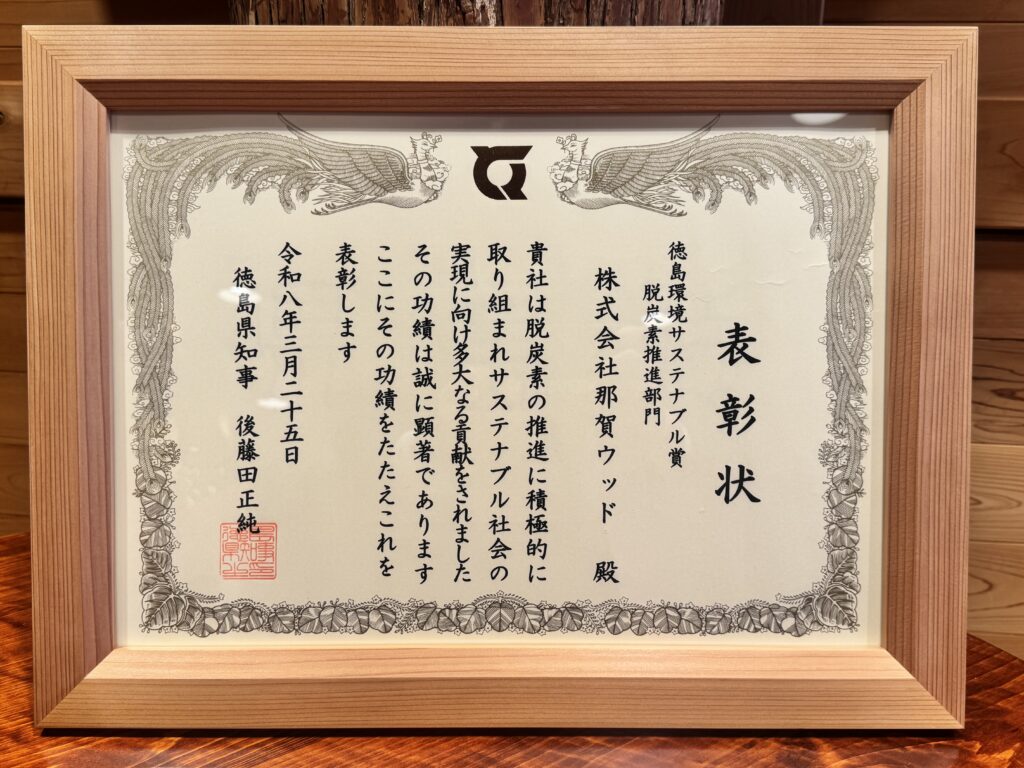 表彰状
徳島環境サステナブル賞
脱炭素推進部門
株式会社那賀ウッド 殿
貴社は脱炭素の推進に積極的に
取り組まれサステナブル社会の
実現に向け多大なる貢献をされました
その功績は誠に顕著であります
ここにその功績をたたえこれを
表彰します
令和八年三月二十五日
徳島県知事 後藤田正純